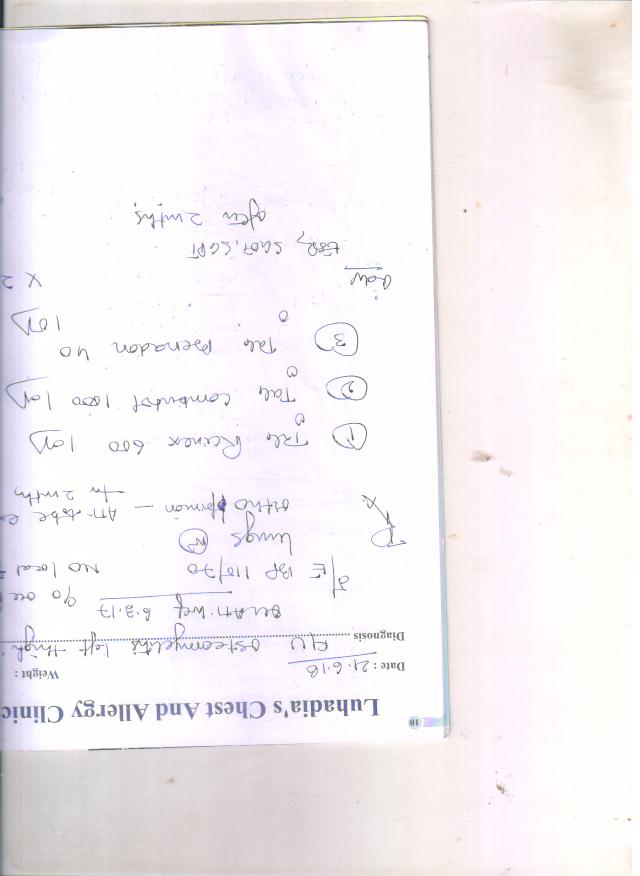 10
Luhadia's Chest And Allergy Clinic
Date : 21.6.18 Weight :
Diagnosis F/U osteomyelitis left thigh
on ATT wef 6.3.17 go
O/E BP 110/70 No local
lungs (N)
ortho opinion – ATT to be
in 2 mths
Rx
① Tab Rcinex 600 1 OD
② Tab Combutol 1000 1 OD
③ Tab Benadon 40 1 OD
Adv × 2
ESR, SGOT, SGPT
after 2 mths